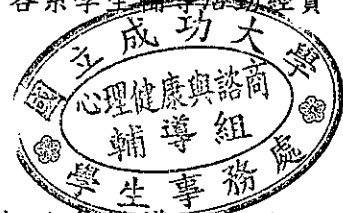 各系學生輔導活動經費
國立成功大學
心理健康與諮商
輔導組
學生事務處